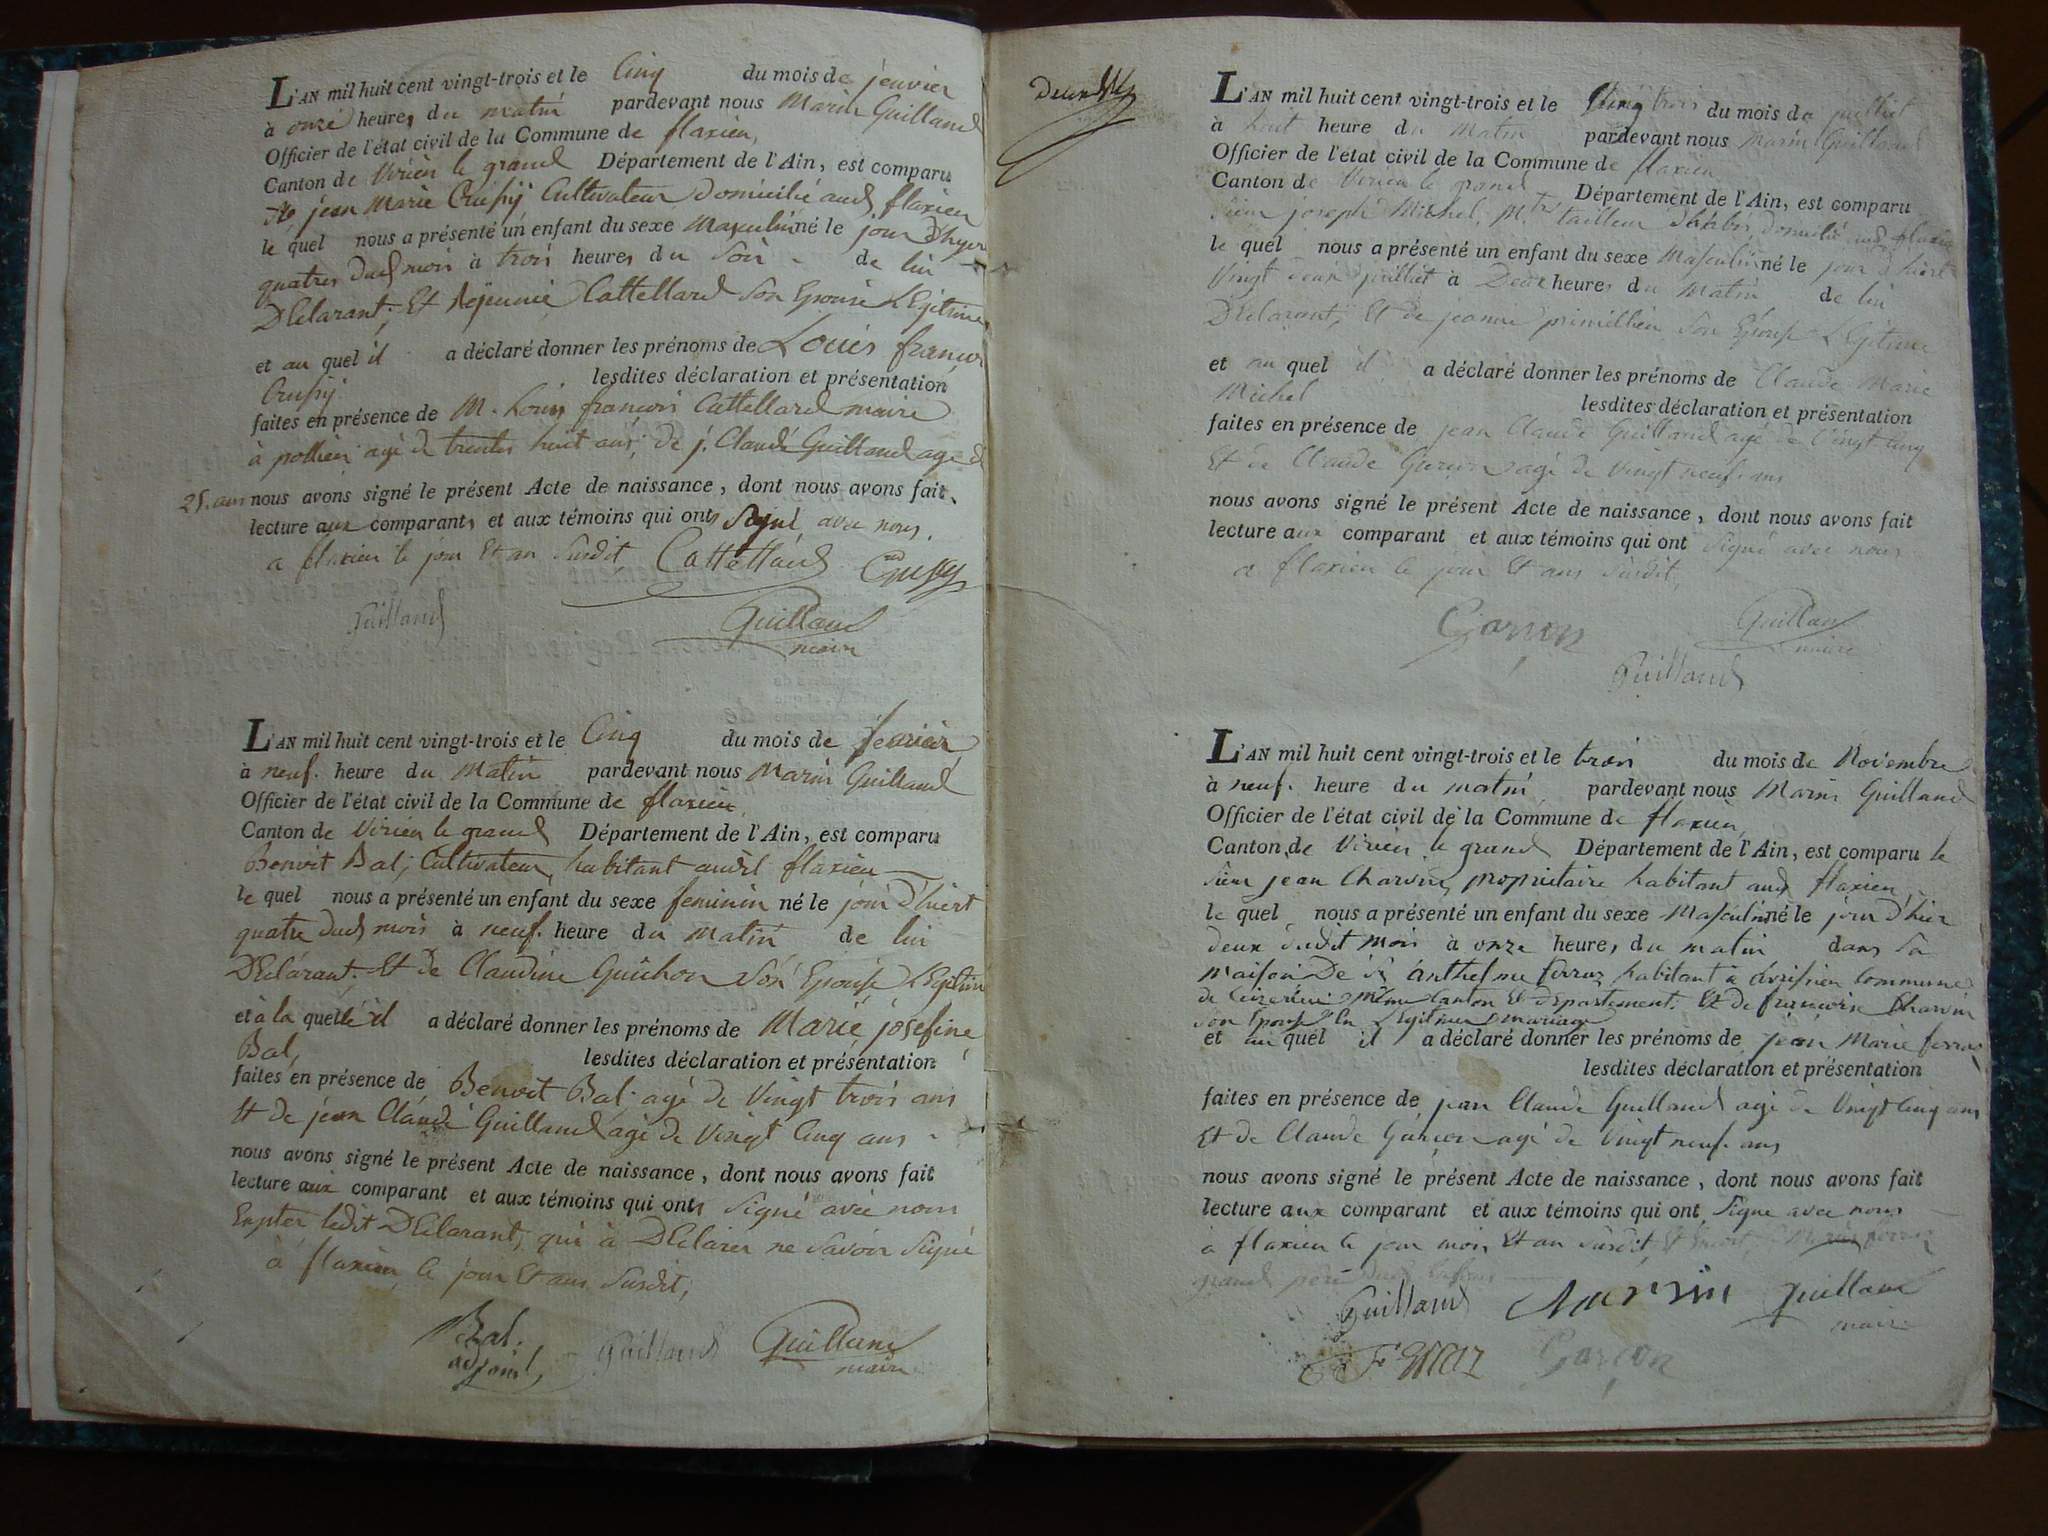 L'AN mil huit cent vingt-trois et le Cinq du mois de jenvier
à onze heures du matin pardevant nous Marin Guilland
Officier de l'état civil de la Commune de flaxieu,
Canton de Virieu le grand Département de l'Ain, est comparu
jean Marie Crussy Cultivateur Domicilié aud flaxieu
le quel nous a présenté un enfant du sexe Masculin né le jour D'hyer
quatres dud mois à trois heures du Soir de lui
DEClarant; Et Cattelland Son Epouse LEgitime
et au quel il a déclaré donner les prénoms de Louis françois
Crussy lesdites déclaration et présentation
faites en présence de M. Louis françois Cattelland maire
à pollieu agé de trentes huit ans, de j. Claude Guilland agé de
25. ans nous avons signé le présent Acte de naissance, dont nous avons fait
lecture aux comparants et aux témoins qui onts Signé avec nous.
a flaxieu le jour Et an Susdit, Cattelland Crussy
Guilland Guilland
maire
L'AN mil huit cent vingt-trois et le Cinq du mois de fevrier
à neuf. heure du Matin pardevant nous Marin Guilland
Officier de l'état civil de la Commune de flaxieu
Canton de Virieu le grand Département de l'Ain, est comparu
Benoit Bal, Cultivateur, habitant audit flaxieu
le quel nous a présenté un enfant du sexe feminin né le jour D'hiert
quatre dud mois à neuf. heure du Matin de lui
DEClarant. Et De Claudine Guichon Son Epouse LEgitime
et à la quelle il a déclaré donner les prénoms de Marie josefine
Bal, lesdites déclaration et présentation
faites en présence de Benoit Bal. agé de Vingt trois ans
Et de jean Claude Guilland agé de Vingt Cinq ans
nous avons signé le présent Acte de naissance, dont nous avons fait
lecture aux comparant et aux témoins qui onts Signé avec nous
Expter ledit DEClarant, qui à DEClarer ne Savoir Signé
à flaxieu le jour Et ans Susdit,
Bal. Guilland Guilland
adjoint maire
L'AN mil huit cent vingt-trois et le trois du mois de juilliet
à huit heure du Matin pardevant nous Marin Guilland
Officier de l'état civil de la Commune de flaxieu
Canton de Virieu le grand Département de l'Ain, est comparu
Sieur joseph Michel, Mtre tailleur D'habis, domicilié aud flaxieu
le quel nous a présenté un enfant du sexe Masculin né le jour d'hiert
Vingt deux juilliet à Deux heures du Matin de lui
DEClarant; Et de jeanne Son Epouse LEgitime
et au quel il a déclaré donner les prénoms de Claude Marie
Michel lesdites déclaration et présentation
faites en présence de jean Claude Guilland agé de Vingt Cinq
Et de Claude Garçon agé de Vingt neuf. ans
nous avons signé le présent Acte de naissance, dont nous avons fait
lecture aux comparant et aux témoins qui ont Signé avec nous
a flaxieu le jour Et ans Susdit,
Garçon Guilland
maire
Guilland
L'AN mil huit cent vingt-trois et le trois du mois de Novembre
à neuf. heure du matin pardevant nous Marin Guilland
Officier de l'état civil de la Commune de flaxieu,
Canton de Virieu le grand Département de l'Ain, est comparu le
Sieur jean Charvin, propriétaire habitant aud flaxieu
le quel nous a présenté un enfant du sexe Masculin né le jour d'hier
deux dudit mois à onze heures du matin dans Sa
maison De Sr anthelme ferraz habitant à avrissieu Commune
de Ceizerieu même Canton Et departement. Et de françoise Charvin
Son Epouse En Legitime mariage
et au quel il a déclaré donner les prénoms de jean Marie ferraz
lesdites déclaration et présentation
faites en présence de jean Claude Guilland agé de Vingt Cinq ans
Et de Claude Garçon agé de Vingt neuf. ans
nous avons signé le présent Acte de naissance, dont nous avons fait
lecture aux comparant et aux témoins qui ont Signe avec nous
à flaxieu le jour mois Et an susdit, ferraz
grand père dud
Guilland Charvin Guilland
maire
Ferraz Garçon